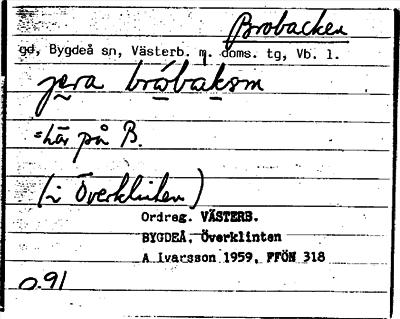 Brobacken
gd, Bygdeå sn, Västerb. n. doms. tg, Vb. l.
jera bråbaksm
=här på B.
(i Överklinten)
Ordreg. VÄSTERB.
BYGDEÅ, Överklinten
A Ivarsson 1959, FFÖN 318
0.91